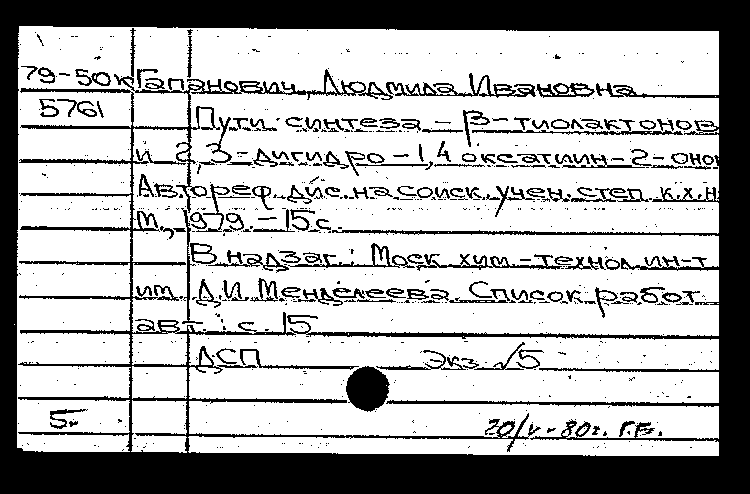 79-50к Гапанович, Людмила Ивановна.
5761 Пути синтеза - β-тиолактонов
и 2,3-дигидро-1,4 оксатиин-2-оно
Автореф. дис. на соиск. учен. степ. к.х.н
М., 1979. - 15 с.
В надзаг.: Моск. хим.-технол. ин-т
им. Д.И. Менделеева. Список работ
авт.: с. 15
ДСП Экз. √5
5- 20/V-80г. Г.Б.